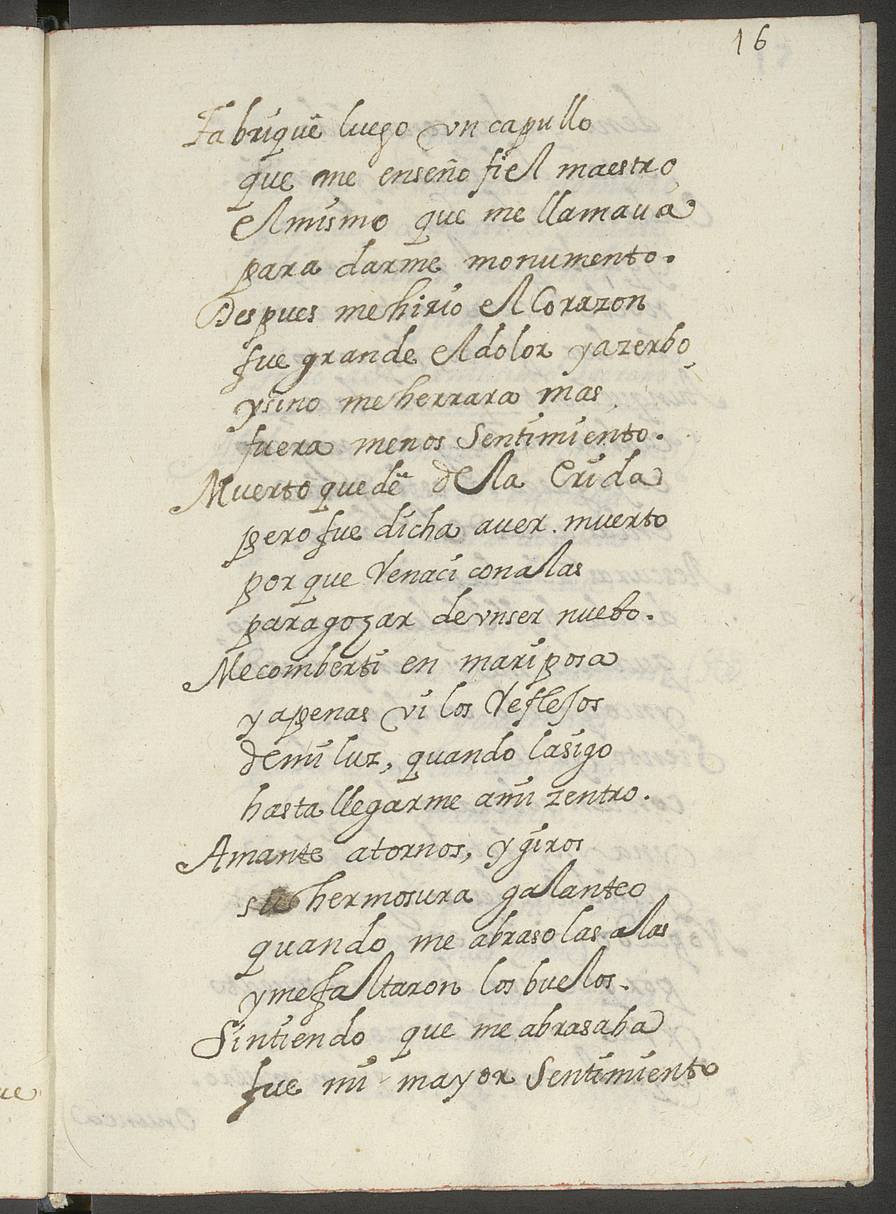 16
Fabriquê luego vn capullo
que me enseño fiel maestro
el mismo que me llamaua
para darme monumento.
Despues me hirio el Corazon
fue grande el dolor y azerbo
y sino me herrara mas
fuera menos Sentimiento.
Muerto quedê de la erida
pero fue dicha auer muerto
por que Renaci con alas
para gozar de vn ser nuebo.
Me comberti en mariposa
y apenas vi los Reflejos
de mi luz, quando la sigo
hasta llegarme a mi zentro.
Amante a tornos, y giros
su hermosura galanteo
quando me abraso las alas
y me faltaron los buelos.
Sintiendo que me abrasaba
fue mi mayor Sentimiento
ue